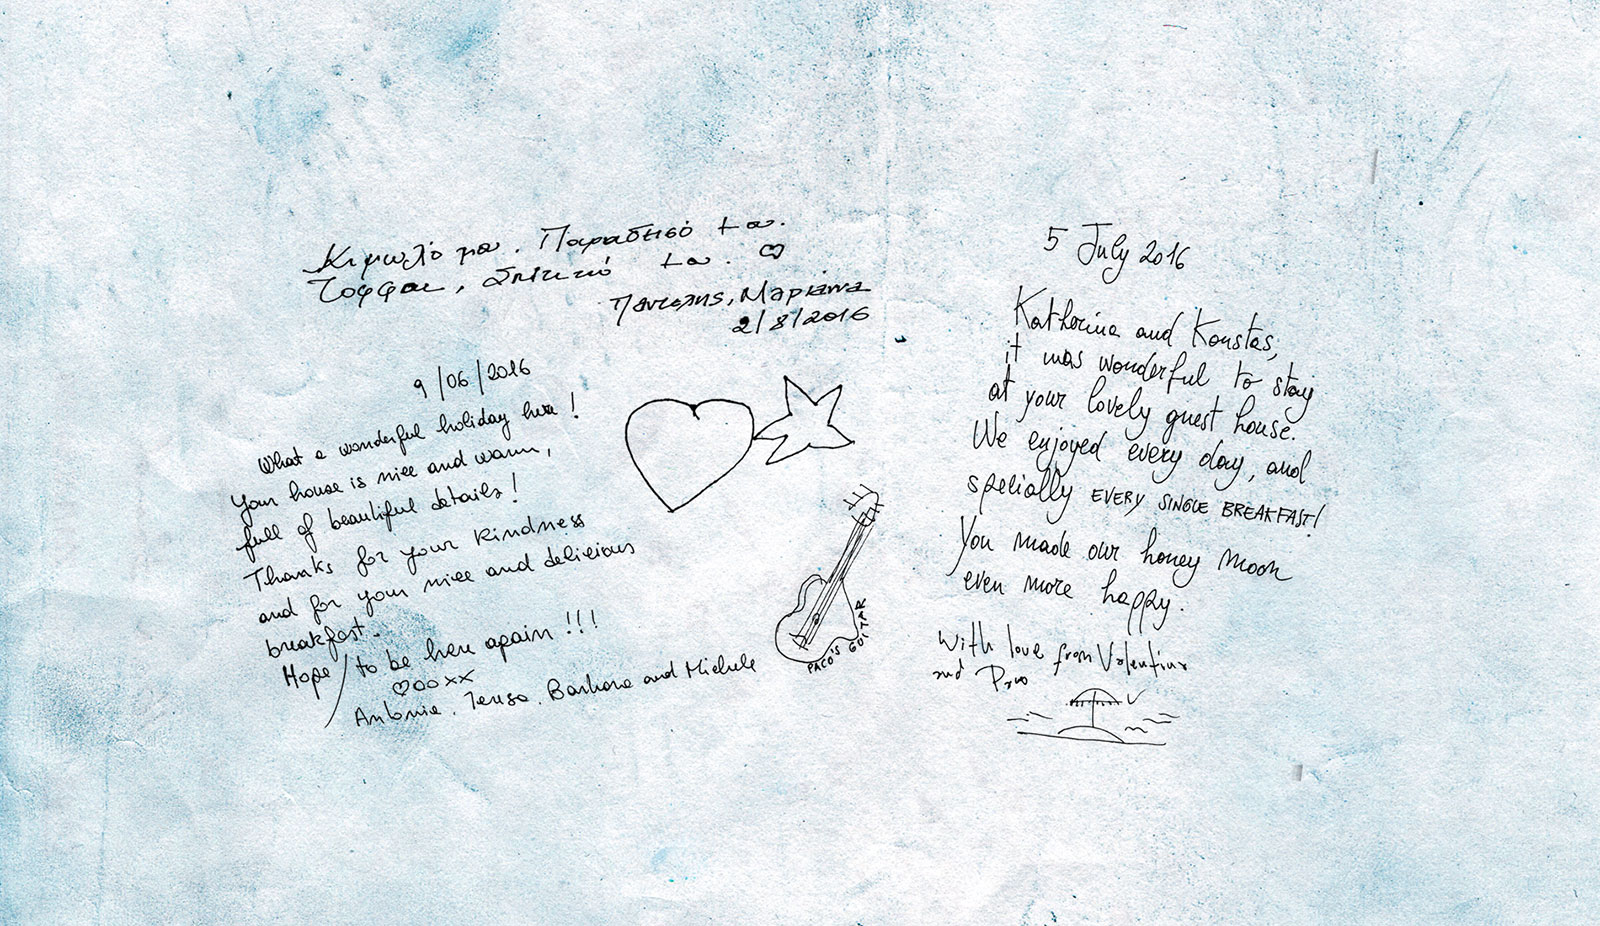 Παραδεισό
2/8/2016
9/06/2016
What a wonderful holiday here!
Your house is nice and warm,
full of beautiful details!
Thanks for your kindness
and for your nice and delicious
breakfast.
Hope to be here again!!!
♡ooxx
Antonia, Teresa, Barbara and Michele
PACO'S GUITAR
5 July 2016
Katherina and Konstas,
it was wonderful to stay
at your lovely guest house.
We enjoyed every day, and
specially EVERY SINGLE BREAKFAST!
You made our honey moon
even more happy.
With love from
and